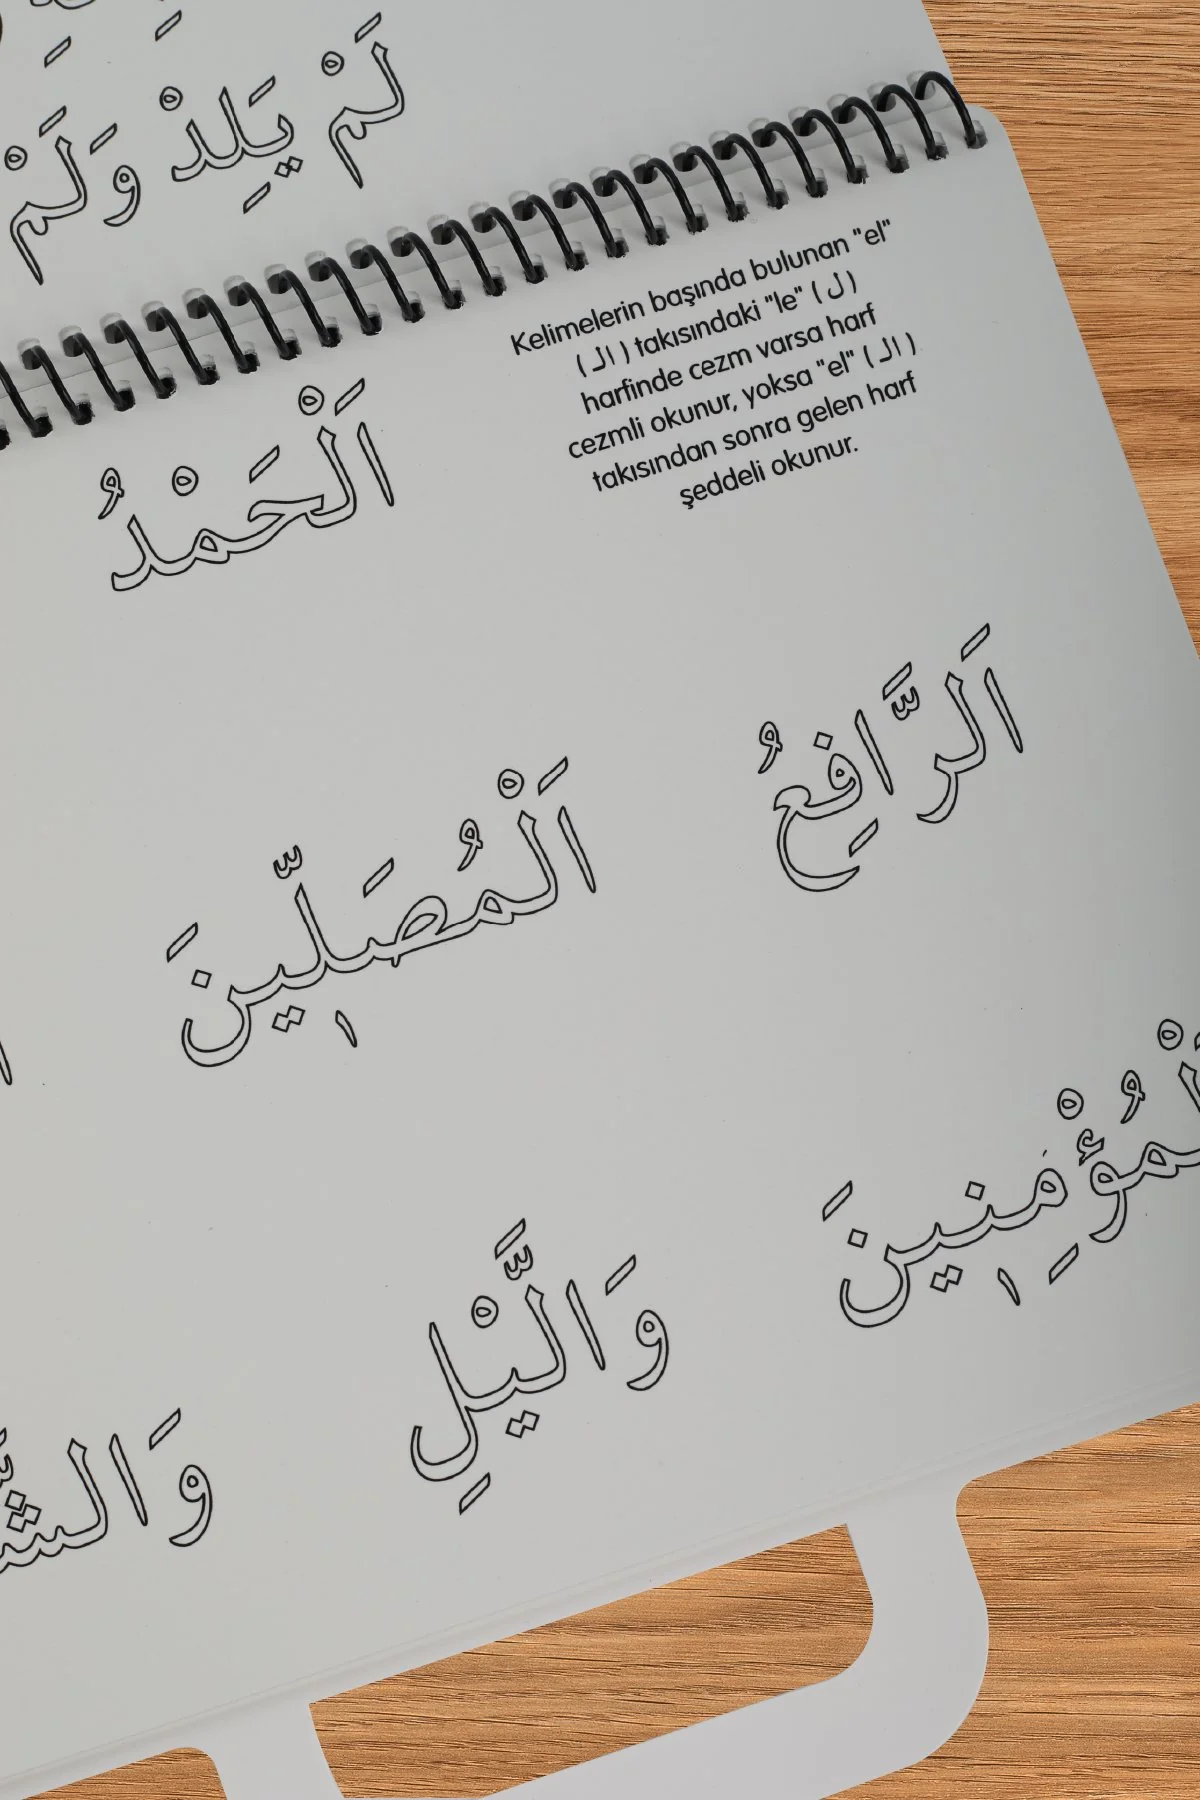 لَمْ يَلِدْ وَلَمْ
Kelimelerin başında bulunan "el"
( الـ ) takısındaki "le" ( ل )
harfinde cezm varsa harf
cezmli okunur, yoksa "el" ( الـ )
takısından sonra gelen harf
şeddeli okunur.
اَلْحَمْدُ
اَلرَّافِعُ
اَلْمُصَلّٖينَ
وَالَّيْلِ